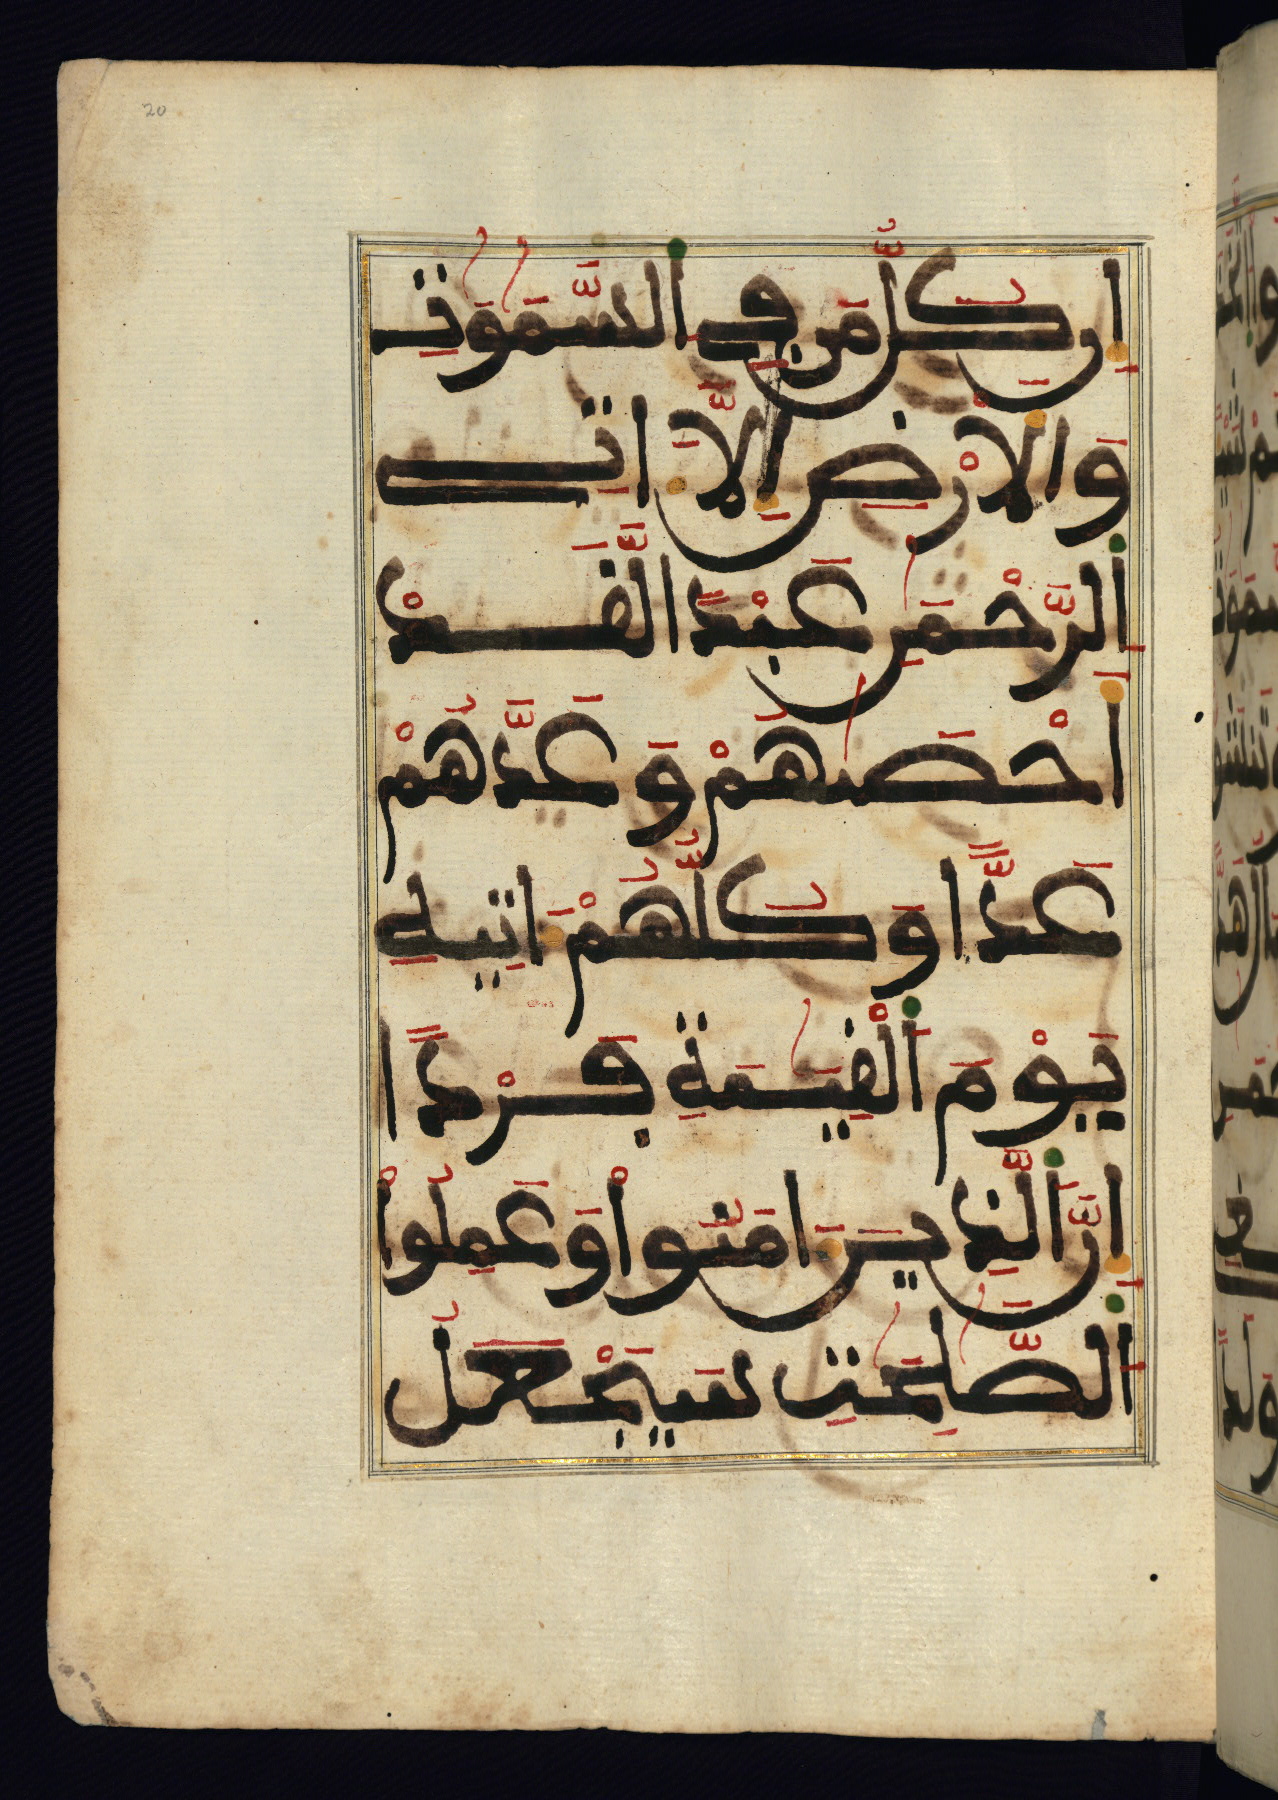 20
إِن كُلُّ مَن فِى اَلسَّمَٰوَٰتِ
وَالَارْضِ إِلَّآ اتِى
اَلرَّحْمَٰنِ عَبْدًا لَّقَدَ
اَحْصٰىهُمْ وَعَدَّهُمْ
عَدًّا وَكُلُّهُمُۥٓ ءَاتِيهِ
يَوْمَ اَلْقِيَٰمَةِ فَرْدًا
إِنَّ اَلذِينَ ءَامَنُواْ وَعَمِلُواْ
اَلصَّٰلِحَٰتِ سَيَجْعَلُ